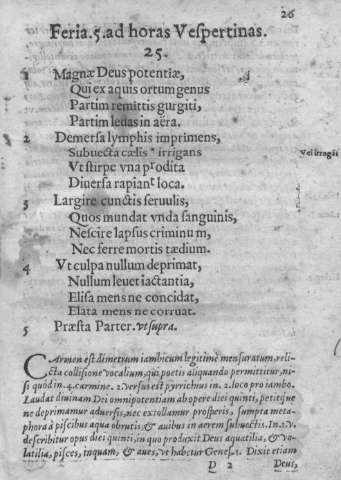 26
Feria.5.ad horas Vespertinas.
25.
1 Magnæ Deus potentiæ,
Qui ex aquis ortum genus
Partim remittis gurgiti,
Partim leuas in aëra.
2 Demersa lymphis imprimens,
Subuecta cælis * irrigans
Vel irrogās
Vt stirpe vna prodita
Diuersa rapiant loca.
3 Largire cunctis seruulis,
Quos mundat vnda sanguinis,
Nescire lapsus criminum,
Nec ferre mortis tædium.
4 Vt culpa nullum deprimat,
Nullum leuet iactantia,
Elisa mens ne concidat,
Elata mens ne corruat.
5 Præsta Parter. vt supra.
CArmen est dimetrum iambicum legitimè mensuratum, reli-
cta collisione vocalium, qui poetis aliquando permittitur, ni-
si quod in .4. carmine. 2. versus est pyrrichius in .2. loco pro iambo.
Laudat diuinam Dei omnipotentiam ab opere diei quinti, petitque
ne deprimamur aduersis, nec extollamur prosperis, sumpta meta-
phora à piscibus aqua obrutis, & auibus in aerem subuectis. In .1. v.
describitur opus diei quinti, in quo produxit Deus aquatilia, & vo-
latilia, pisces, inquam, & aues, vt habetur Genes.1. Dixit etiam
D 2 Deus,